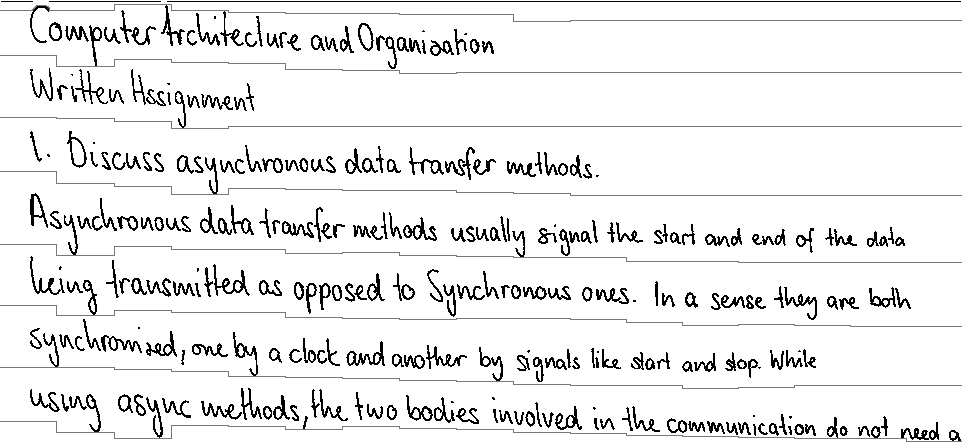 Computer Architecture and Organization
Written Assignment
1. Discuss asynchronous data transfer methods.
Asynchronous data transfer methods usually signal the start and end of the data
being transmitted as opposed to Synchronous ones. In a sense they are both
synchronized, one by a clock and another by signals like start and stop. While
using async methods, the two bodies involved in the communication do not need a